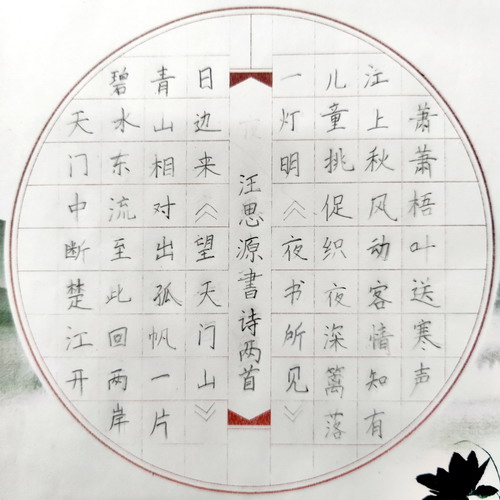 萧萧梧叶送寒声
江上秋风动客情知有
儿童挑促织夜深篱落
一灯明《夜书所见》
天门中断楚江开
碧水东流至此回两岸
青山相对出孤帆一片
日边来《望天门山》
汪思源書诗两首